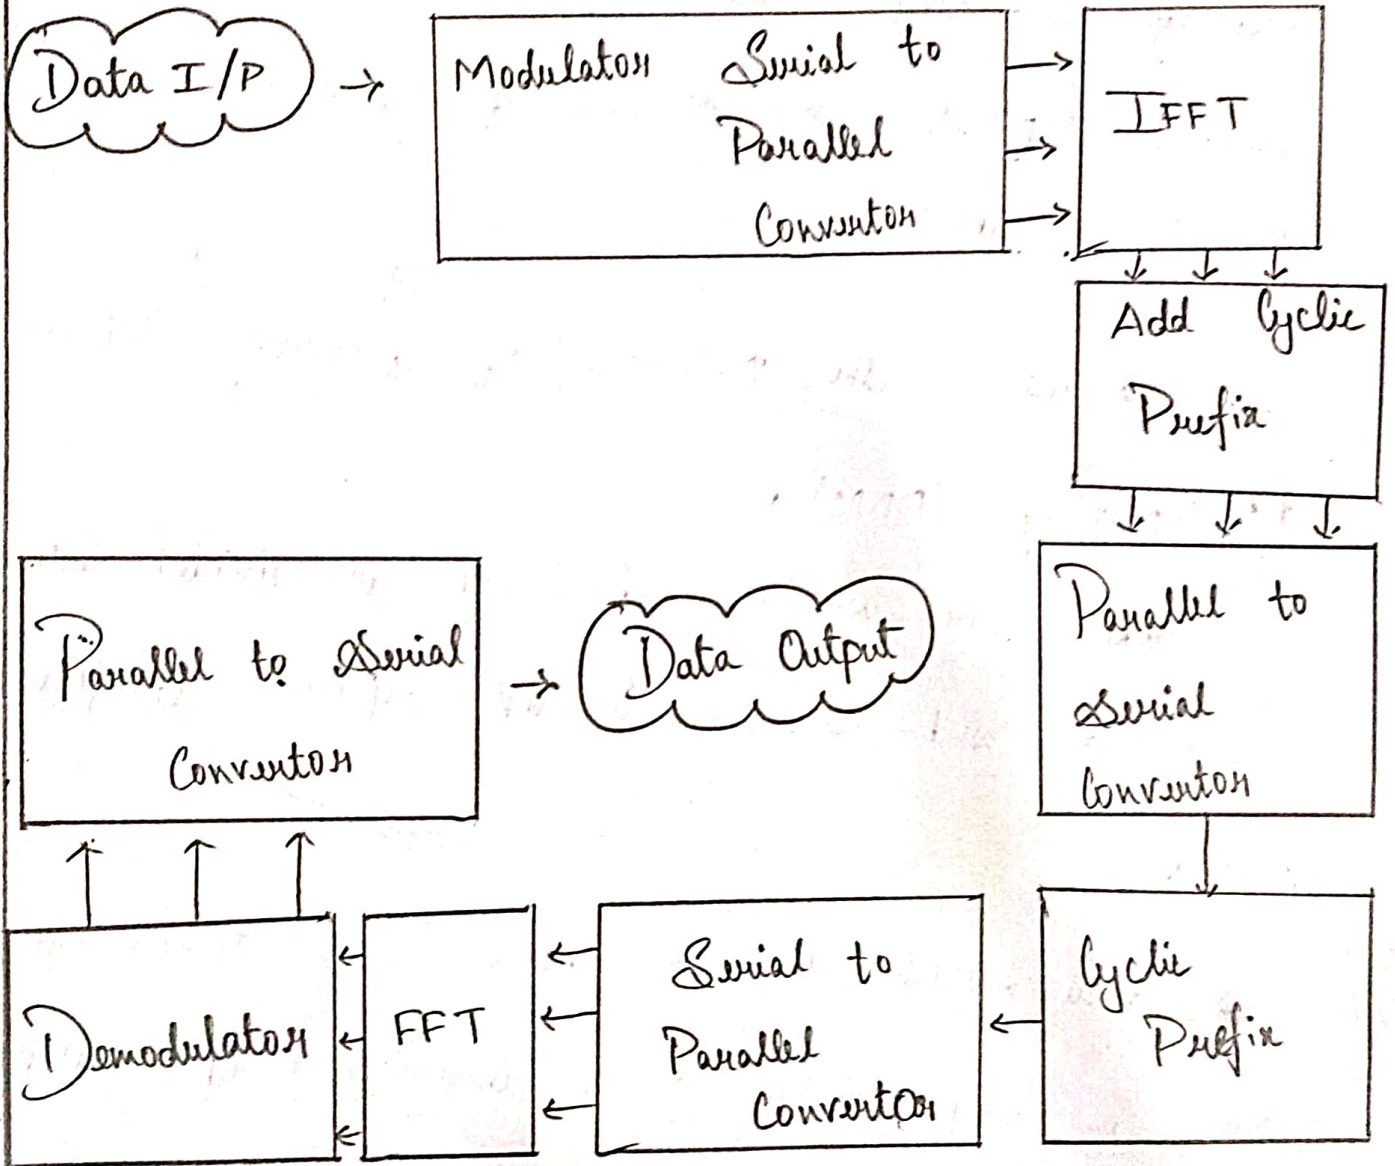 Data I/P
Modulator Serial to
Parallel
Convertor
IFFT
Add Cyclic
Prefix
Parallel to
Serial
Convertor
Cyclic
Prefix
Serial to
Parallel
Convertor
FFT
Demodulator
Parallel to Serial
Convertor
Data Output